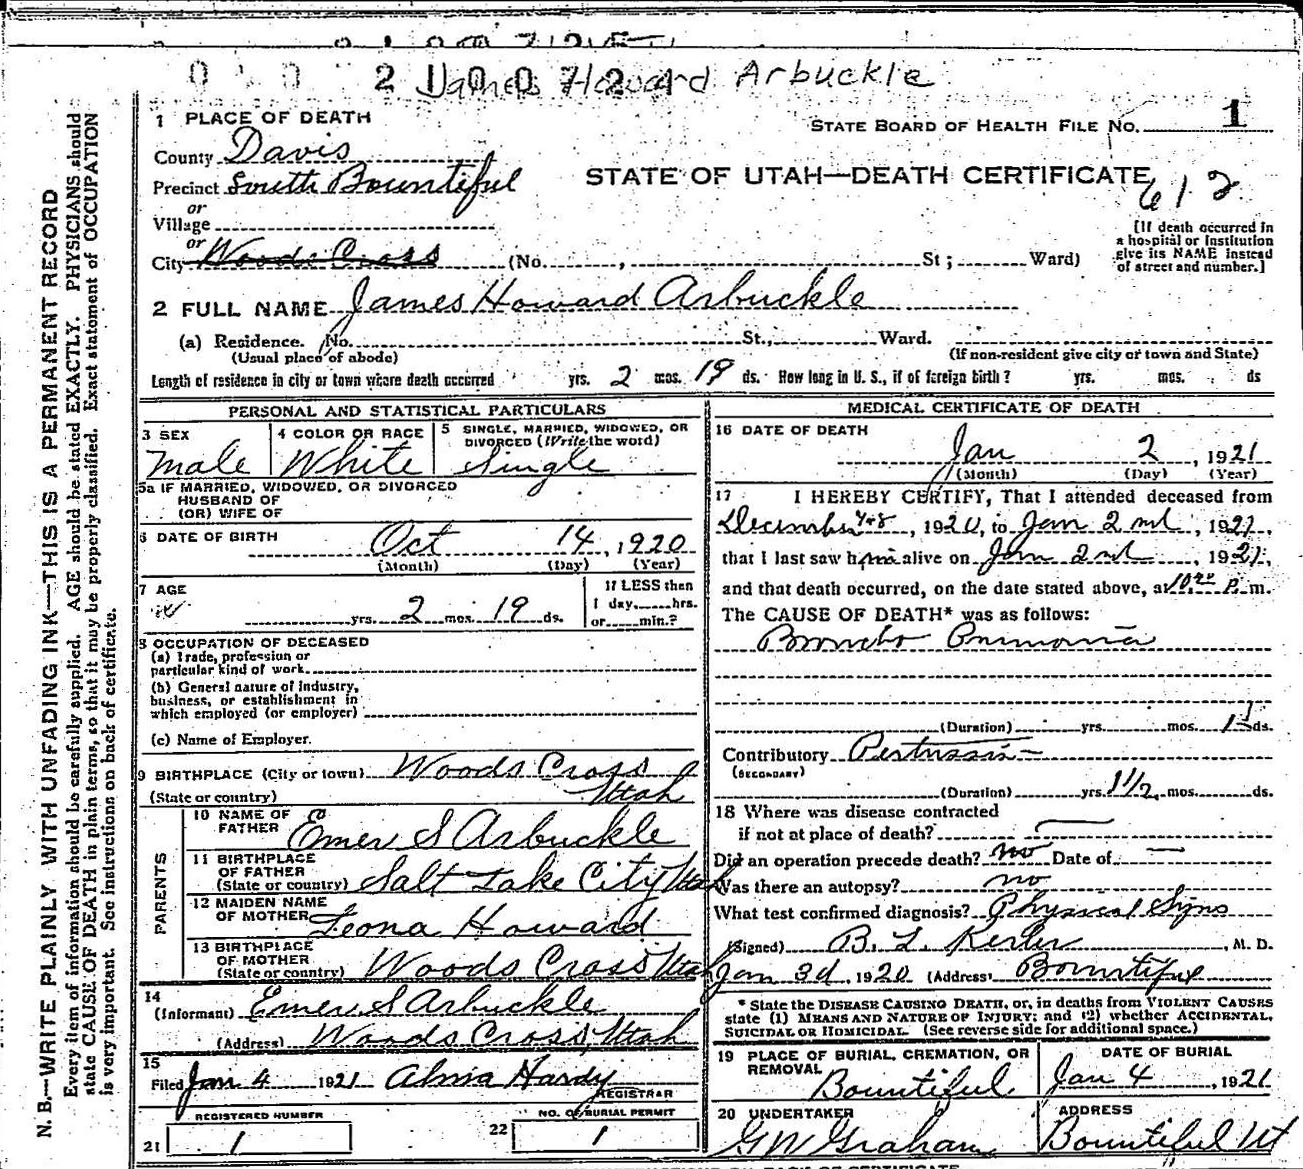 James Howard Arbuckle
1 PLACE OF DEATH
STATE BOARD OF HEALTH FILE NO. 1
County Davis
Precinct South Bountiful
STATE OF UTAH—DEATH CERTIFICATE
612
or
Village
or
City Woods Cross (No. , St ; Ward)
[If death occurred in
a hospital or institution
give its NAME instead
of street and number.]
2 FULL NAME James Howard Arbuckle
(a) Residence. No. St., Ward.
(Usual place of abode) (If non-resident give city or town and State)
Length of residence in city or town where death occurred yrs. 2 mos. 19 ds. How long in U. S., if of foreign birth? yrs. mos. ds
PERSONAL AND STATISTICAL PARTICULARS
3 SEX 4 COLOR OR RACE 5 SINGLE, MARRIED, WIDOWED, OR
DIVORCED (Write the word)
Male White Single
5a IF MARRIED, WIDOWED, OR DIVORCED
HUSBAND OF
(OR) WIFE OF
6 DATE OF BIRTH Oct 14, 1920
(Month) (Day) (Year)
7 AGE If LESS then
1 day, hrs.
yrs. 2 mos. 19 ds. or min.?
8 OCCUPATION OF DECEASED
(a) Trade, profession or
particular kind of work
(b) General nature of industry,
business, or establishment in
which employed (or employer)
(c) Name of Employer.
9 BIRTHPLACE (City or town) Woods Cross
(State or country) Utah
PARENTS
10 NAME OF
FATHER Emer S Arbuckle
11 BIRTHPLACE
OF FATHER
(State or country) Salt Lake City Utah
12 MAIDEN NAME
OF MOTHER Leona Howard
13 BIRTHPLACE
OF MOTHER
(State or country) Woods Cross Utah
14
(Informant) Emer S Arbuckle
(Address) Woods Cross, Utah
15
Filed Jan 4 1921 Alma Hardy
REGISTRAR
REGISTERED NUMBER NO. OF BURIAL PERMIT
21 1 22 1
MEDICAL CERTIFICATE OF DEATH
16 DATE OF DEATH
Jan 2, 1921
(Month) (Day) (Year)
17 I HEREBY CERTIFY, That I attended deceased from
December, 1920, to Jan 2nd, 1921,
that I last saw him alive on Jan 2nd, 1921,
and that death occurred, on the date stated above, at 10 P. m.
The CAUSE OF DEATH* was as follows:
Broncho Pnimonia
(Duration) yrs. mos. ds.
Contributory Pertussis
(SECONDARY)
(Duration) yrs. 1 1/2 mos. ds.
18 Where was disease contracted
if not at place of death?
Did an operation precede death? no Date of —
Was there an autopsy? no
What test confirmed diagnosis? Physical Signs
(Signed) B. L. Kesler, M. D.
Jan 3d, 1920 (Address) Bountiful
* State the DISEASE CAUSING DEATH, or, in deaths from VIOLENT CAUSES
state (1) MEANS AND NATURE OF INJURY; and (2) whether ACCIDENTAL,
SUICIDAL OR HOMICIDAL. (See reverse side for additional space.)
19 PLACE OF BURIAL, CREMATION, OR
REMOVAL Bountiful
DATE OF BURIAL
Jan 4, 1921
20 UNDERTAKER
G W Graham
ADDRESS
Bountiful Ut
N. B.—WRITE PLAINLY WITH UNFADING INK—THIS IS A PERMANENT RECORD
Every item of information should be carefully supplied. AGE should be stated EXACTLY. PHYSICIANS should
state CAUSE OF DEATH in plain terms, so that it may be properly classified. Exact statement of OCCUPATION
is very important. See instruction on back of certificate.